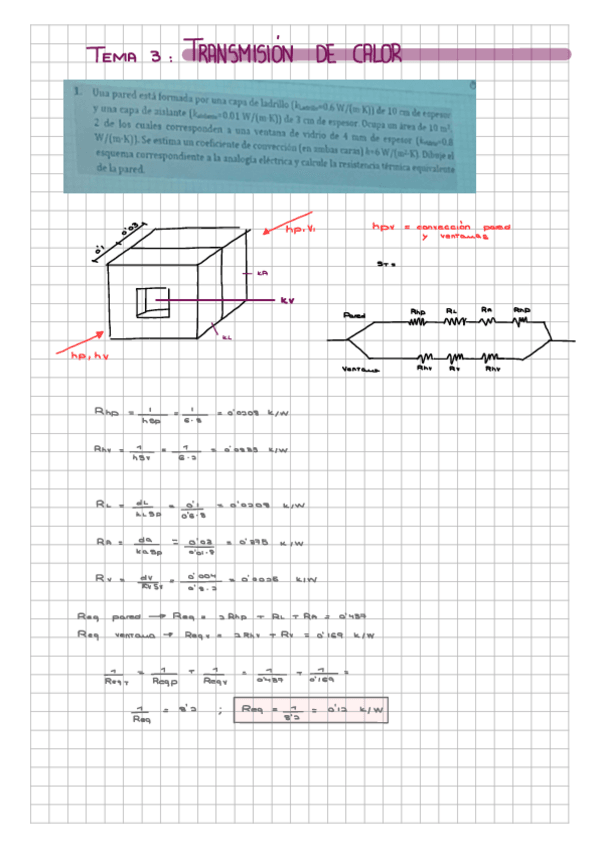 TEMA 3: TRANSMISIÓN DE CALOR
1. Una pared está formada por una capa de ladrillo (kladrillo=0.6 W/(m·K)) de 10 cm de espesor
y una capa de aislante (kaislante=0.01 W/(m·K)) de 3 cm de espesor. Ocupa un área de 10 m²,
2 de los cuales corresponden a una ventana de vidrio de 4 mm de espesor (kvidrio=0.8
W/(m·K)). Se estima un coeficiente de convección (en ambas caras) h=6 W/(m²·K). Dibuje el
esquema correspondiente a la analogía eléctrica y calcule la resistencia térmica equivalente
de la pared.
0'1 0'03
hp, V,
kA
kv
kL
hp, hv
hpv = convección pared
y ventana
ST =
Pared Rhp RL RA Rhp
Ventana Rhv Rv Rhv
Rhp = 1/hSp = 1/6·8 = 0'0208 K/W
Rhv = 1/hSv = 1/6·2 = 0'0833 K/W
RL = dL/kL Sp = 0'1/0'6·8 = 0'0208 K/W
RA = da/ka Sp = 0'03/0'01·8 = 0'375 K/W
Rv = dv/kv Sv = 0'004/0'8·2 = 0'0025 K/W
Req pared → Req = 2Rhp + RL + RA = 0'437
Req ventana → Req v = 2Rhv + Rv = 0'169 K/W
1/Req T = 1/Req p + 1/Req v = 1/0'437 + 1/0'169 =
1/Req = 8'2 ; Req = 1/8'2 = 0'12 K/W